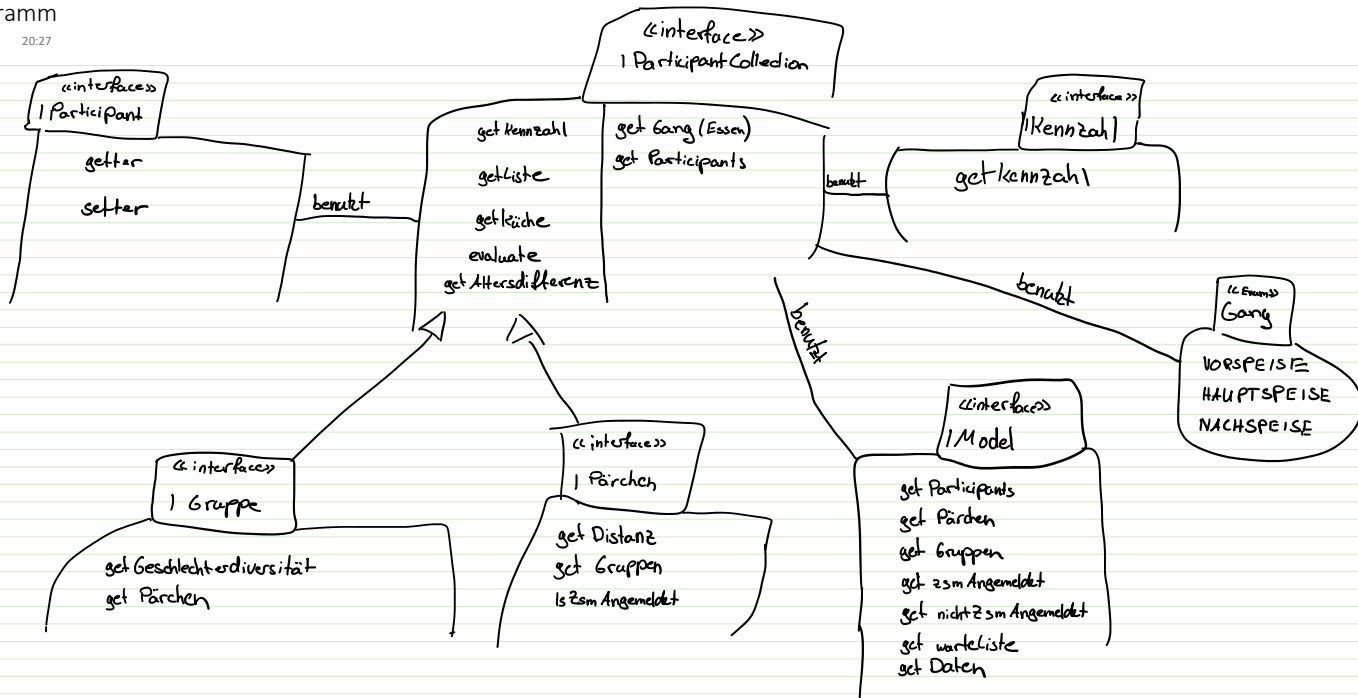 ramm
20:27
«interface»
IParticipantCollection
get Kennzahl
getListe
getKüche
evaluate
get Altersdifferenz
get Gang (Essen)
get Participants
«interface»
IParticipant
getter
setter
benutzt
«interface»
IKennzahl
getKennzahl
benutzt
benutzt
«Enum»
Gang
VORSPEISE
HAUPTSPEISE
NACHSPEISE
benutzt
«interface»
IGruppe
get Geschlechterdiversität
get Pärchen
«interface»
IPärchen
get Distanz
get Gruppen
Is Zsm Angemeldet
«interface»
IModel
get Participants
get Pärchen
get Gruppen
get zsm Angemeldet
get nicht Zsm Angemeldet
get warteliste
get Daten